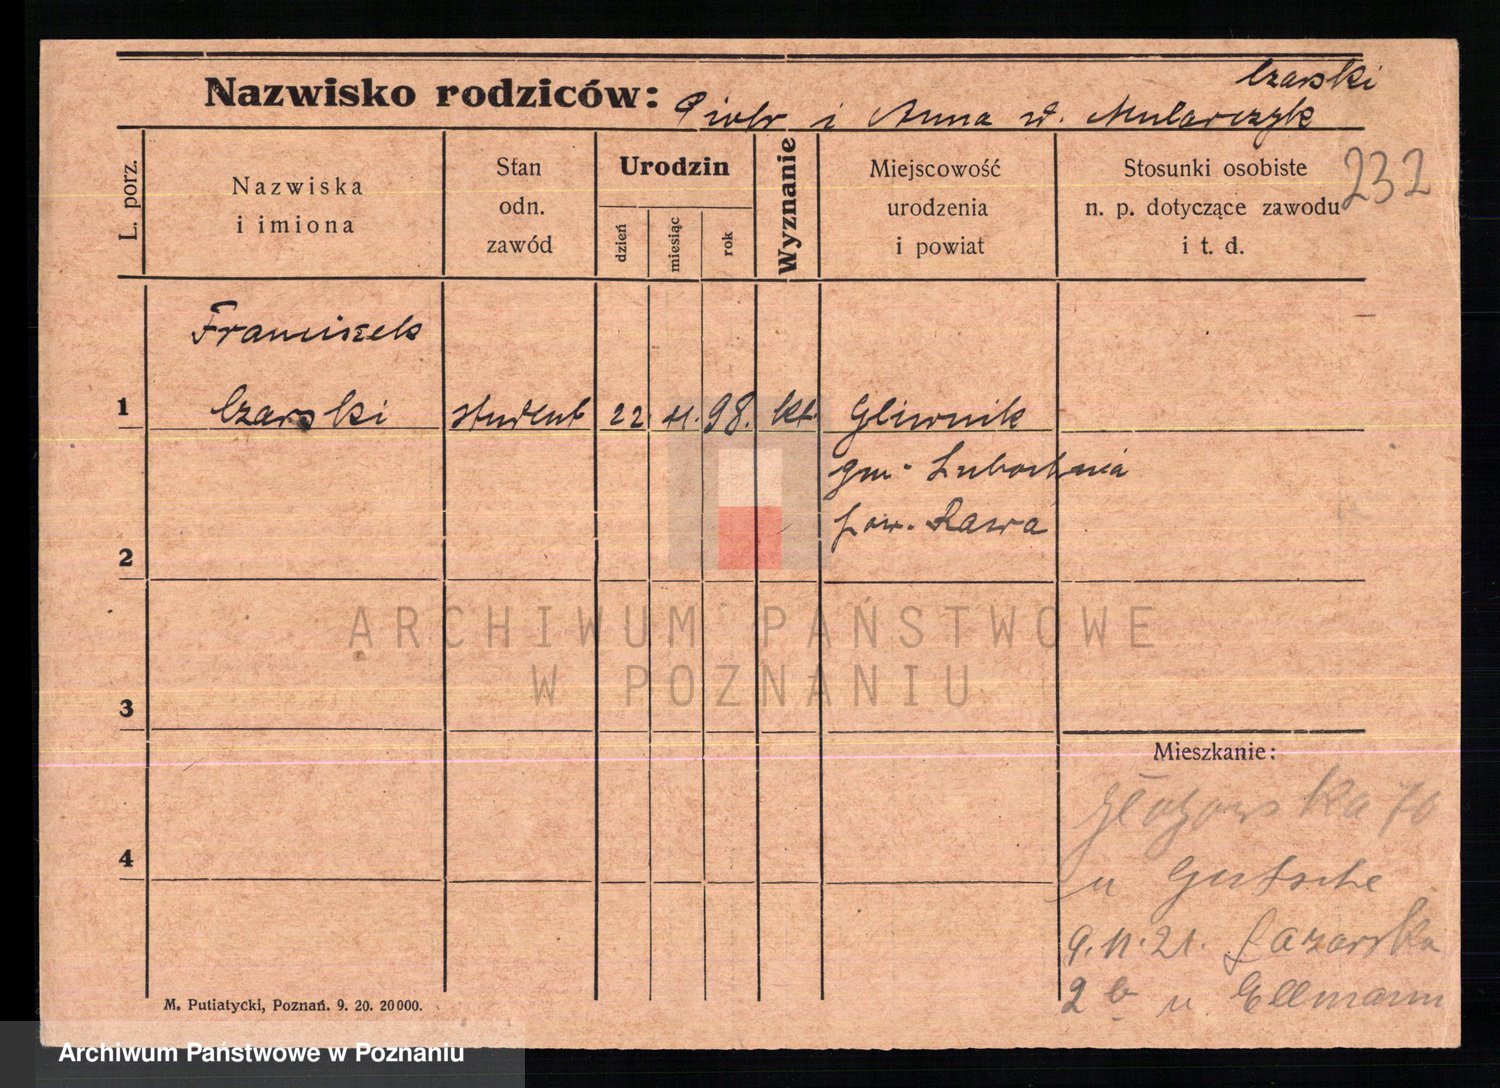 Czarski
Nazwisko rodziców: Piotr i Anna ur. Mularczyk
L. porz.
Nazwiska
i imiona
Stan
odn.
zawód
Urodzin
dzień
miesiąc
rok
Wyznanie
Miejscowość
urodzenia
i powiat
Stosunki osobiste
n. p. dotyczące zawodu
i t. d.
232
Franciszek
1 Czarski student 22. 11. 98. kt. Gliwnik
gm. Lubochnia
pow. Rawa
2
3
4
ARCHIWUM PAŃSTWOWE
W POZNANIU
Mieszkanie:
Głogowska 70
u Gutsche
9.11.21. Łazarska
2 b u. Ellmann
M. Putiatycki, Poznań. 9. 20. 20000.
Archiwum Państwowe w Poznaniu